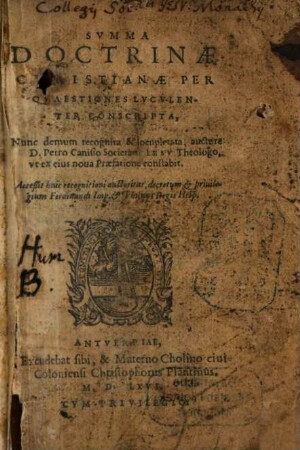 Collegij Societ. Iesv. Monachij
SVMMA
DOCTRINÆ
CHRISTIANÆ PER
QVAESTIONES LVCVLEN-
TER CONSCRIPTA,
Nunc demum recognita & locupletata, auctore
D. Petro Canisio Societat. IESV Theologo,
vt ex eius noua Præfatione constabit.
Accessit huic recognitioni auctoritas, decretum & priuile-
gium Ferdinandi Imp. & Philippi Regis Hisp.
Hum
B.
ANTVERPIAE,
Excudebat sibi, & Materno Cholino ciui
Coloniensi Christophorus Plantinus,
M. D. LXVI.
CVM PRIVILEGIO